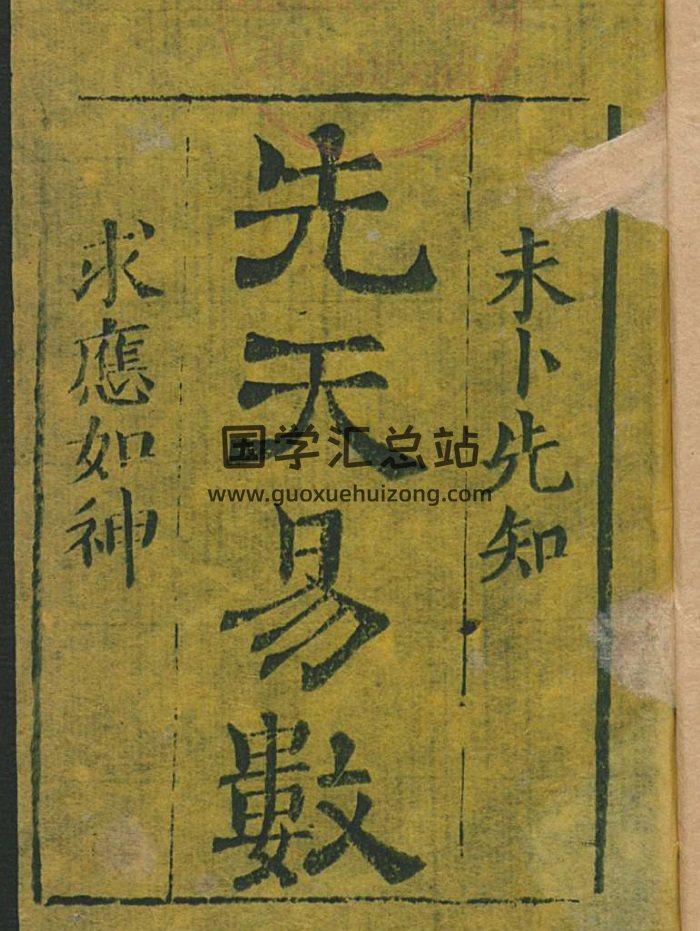 未卜先知
先天易數
求應如神
国学汇总站
www.guoxuehuizong.com